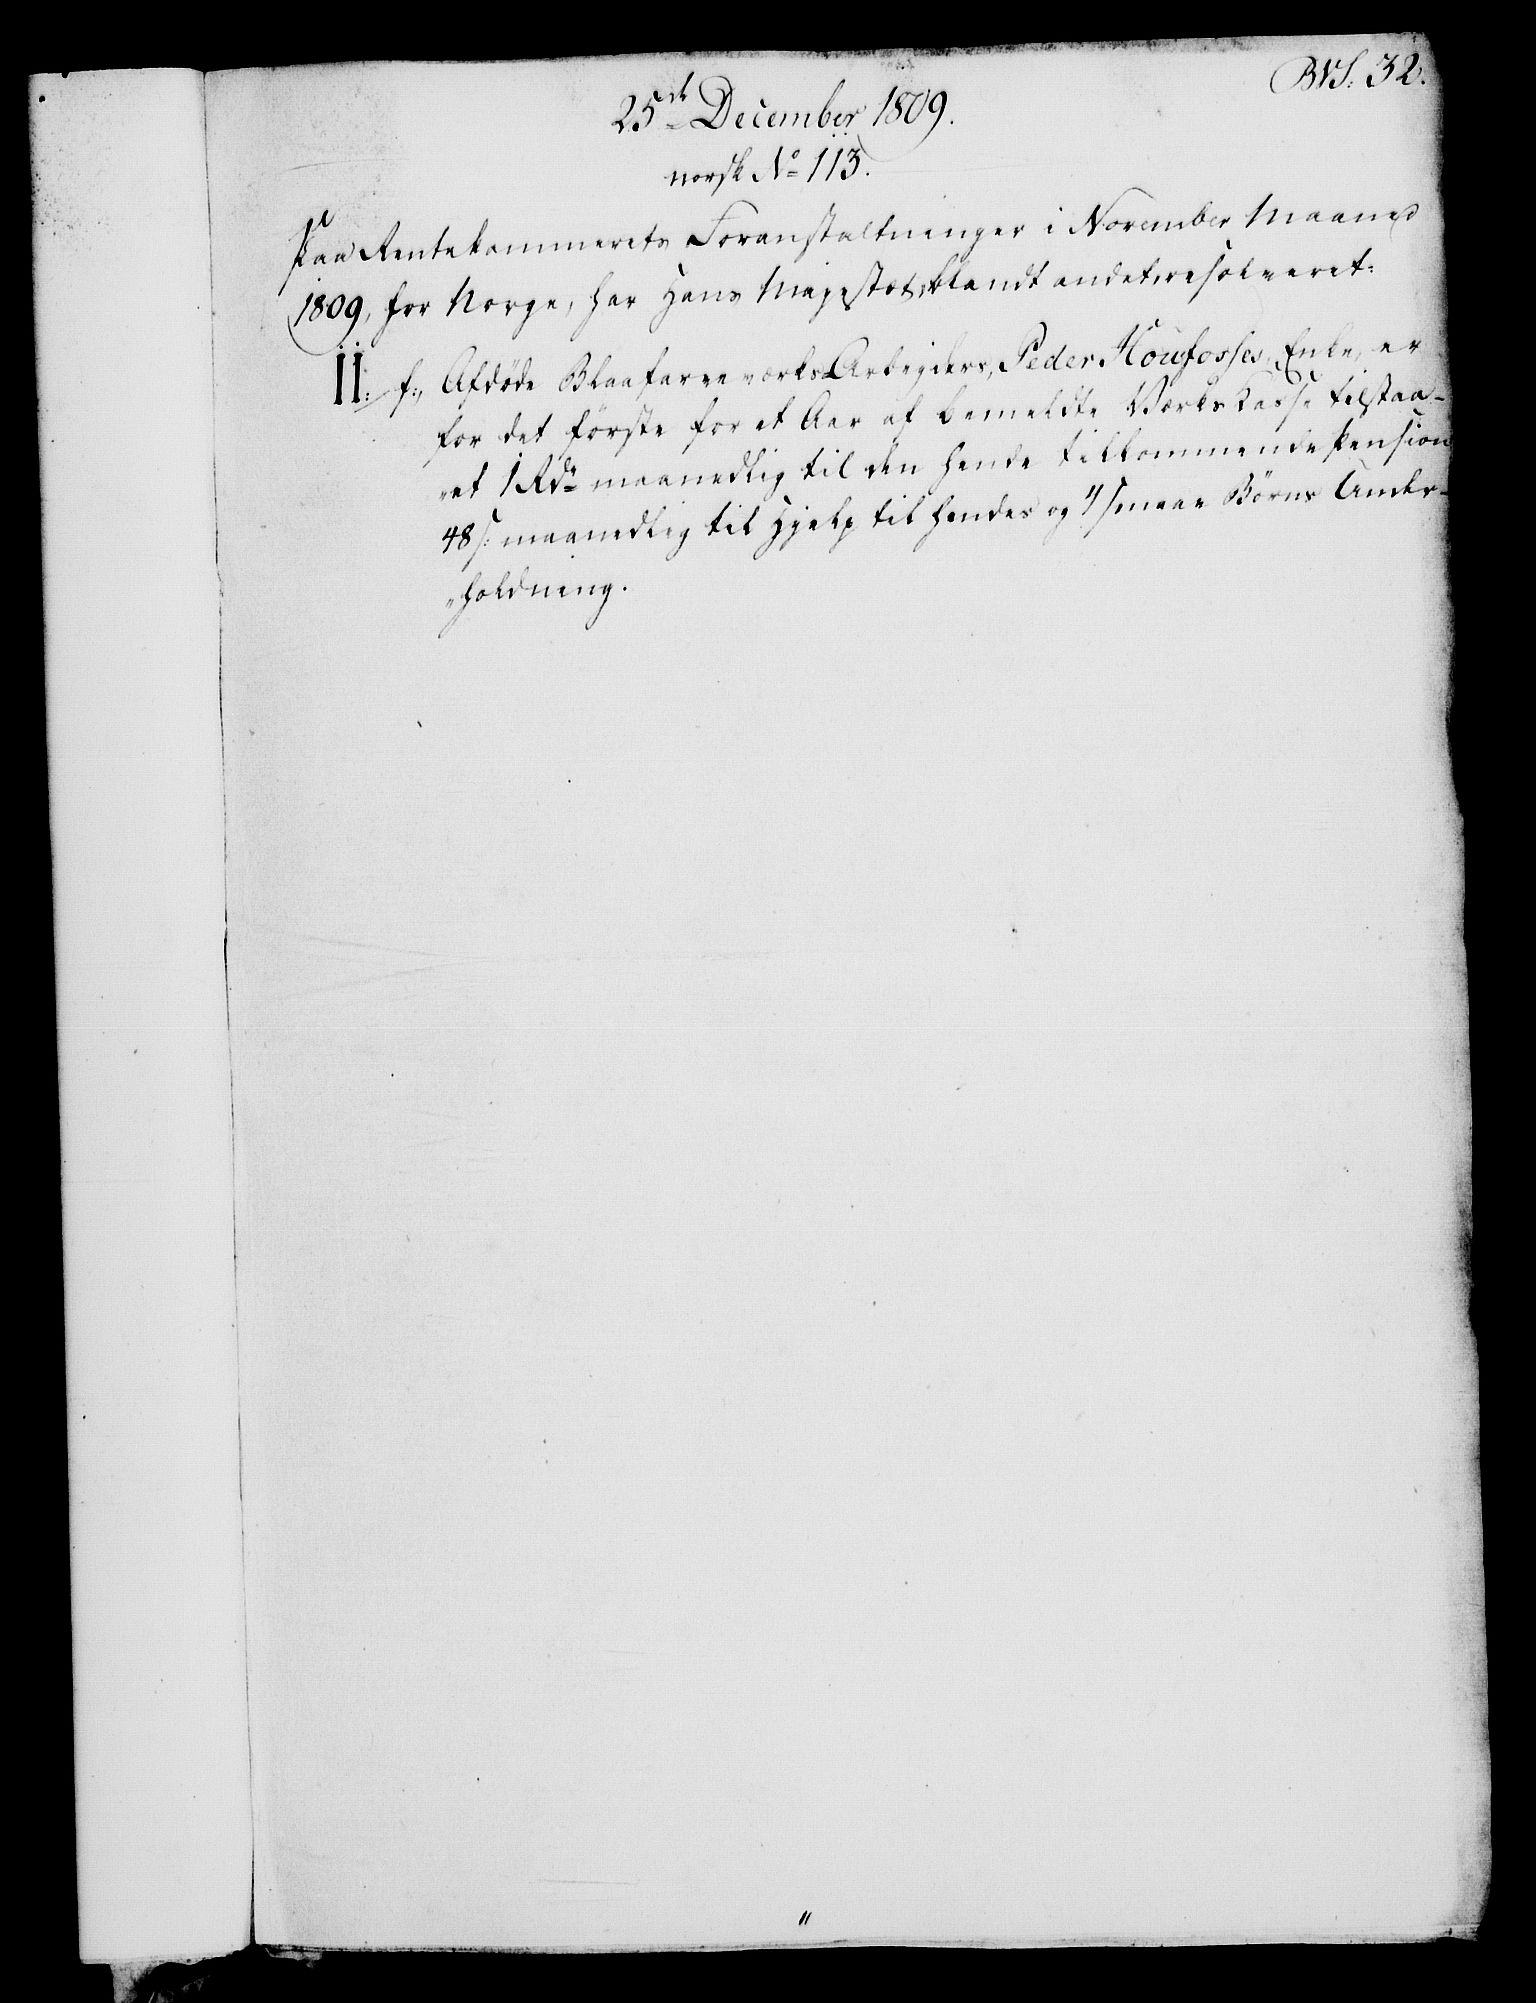 BVS. 32.
25de December 1809.
norsk No 113.
Paa Rentekammerets Foranstaltninger i November Maaned
1809, for Norge, har Hans Majestæt, blandt andet, resolveret:
II: f., Afdöde Blaafarveværks Arbejders, Peder Houfosses, Enke, er
for det förste for et Aar af bemeldte Værks Kasse tilstaa-
"et 1 Rdr maanedlig til den hende tilkommende Pension
48 s: maanedlig til Hjelp til hendes og 4 smaae Börns Under-
"holdning.
"